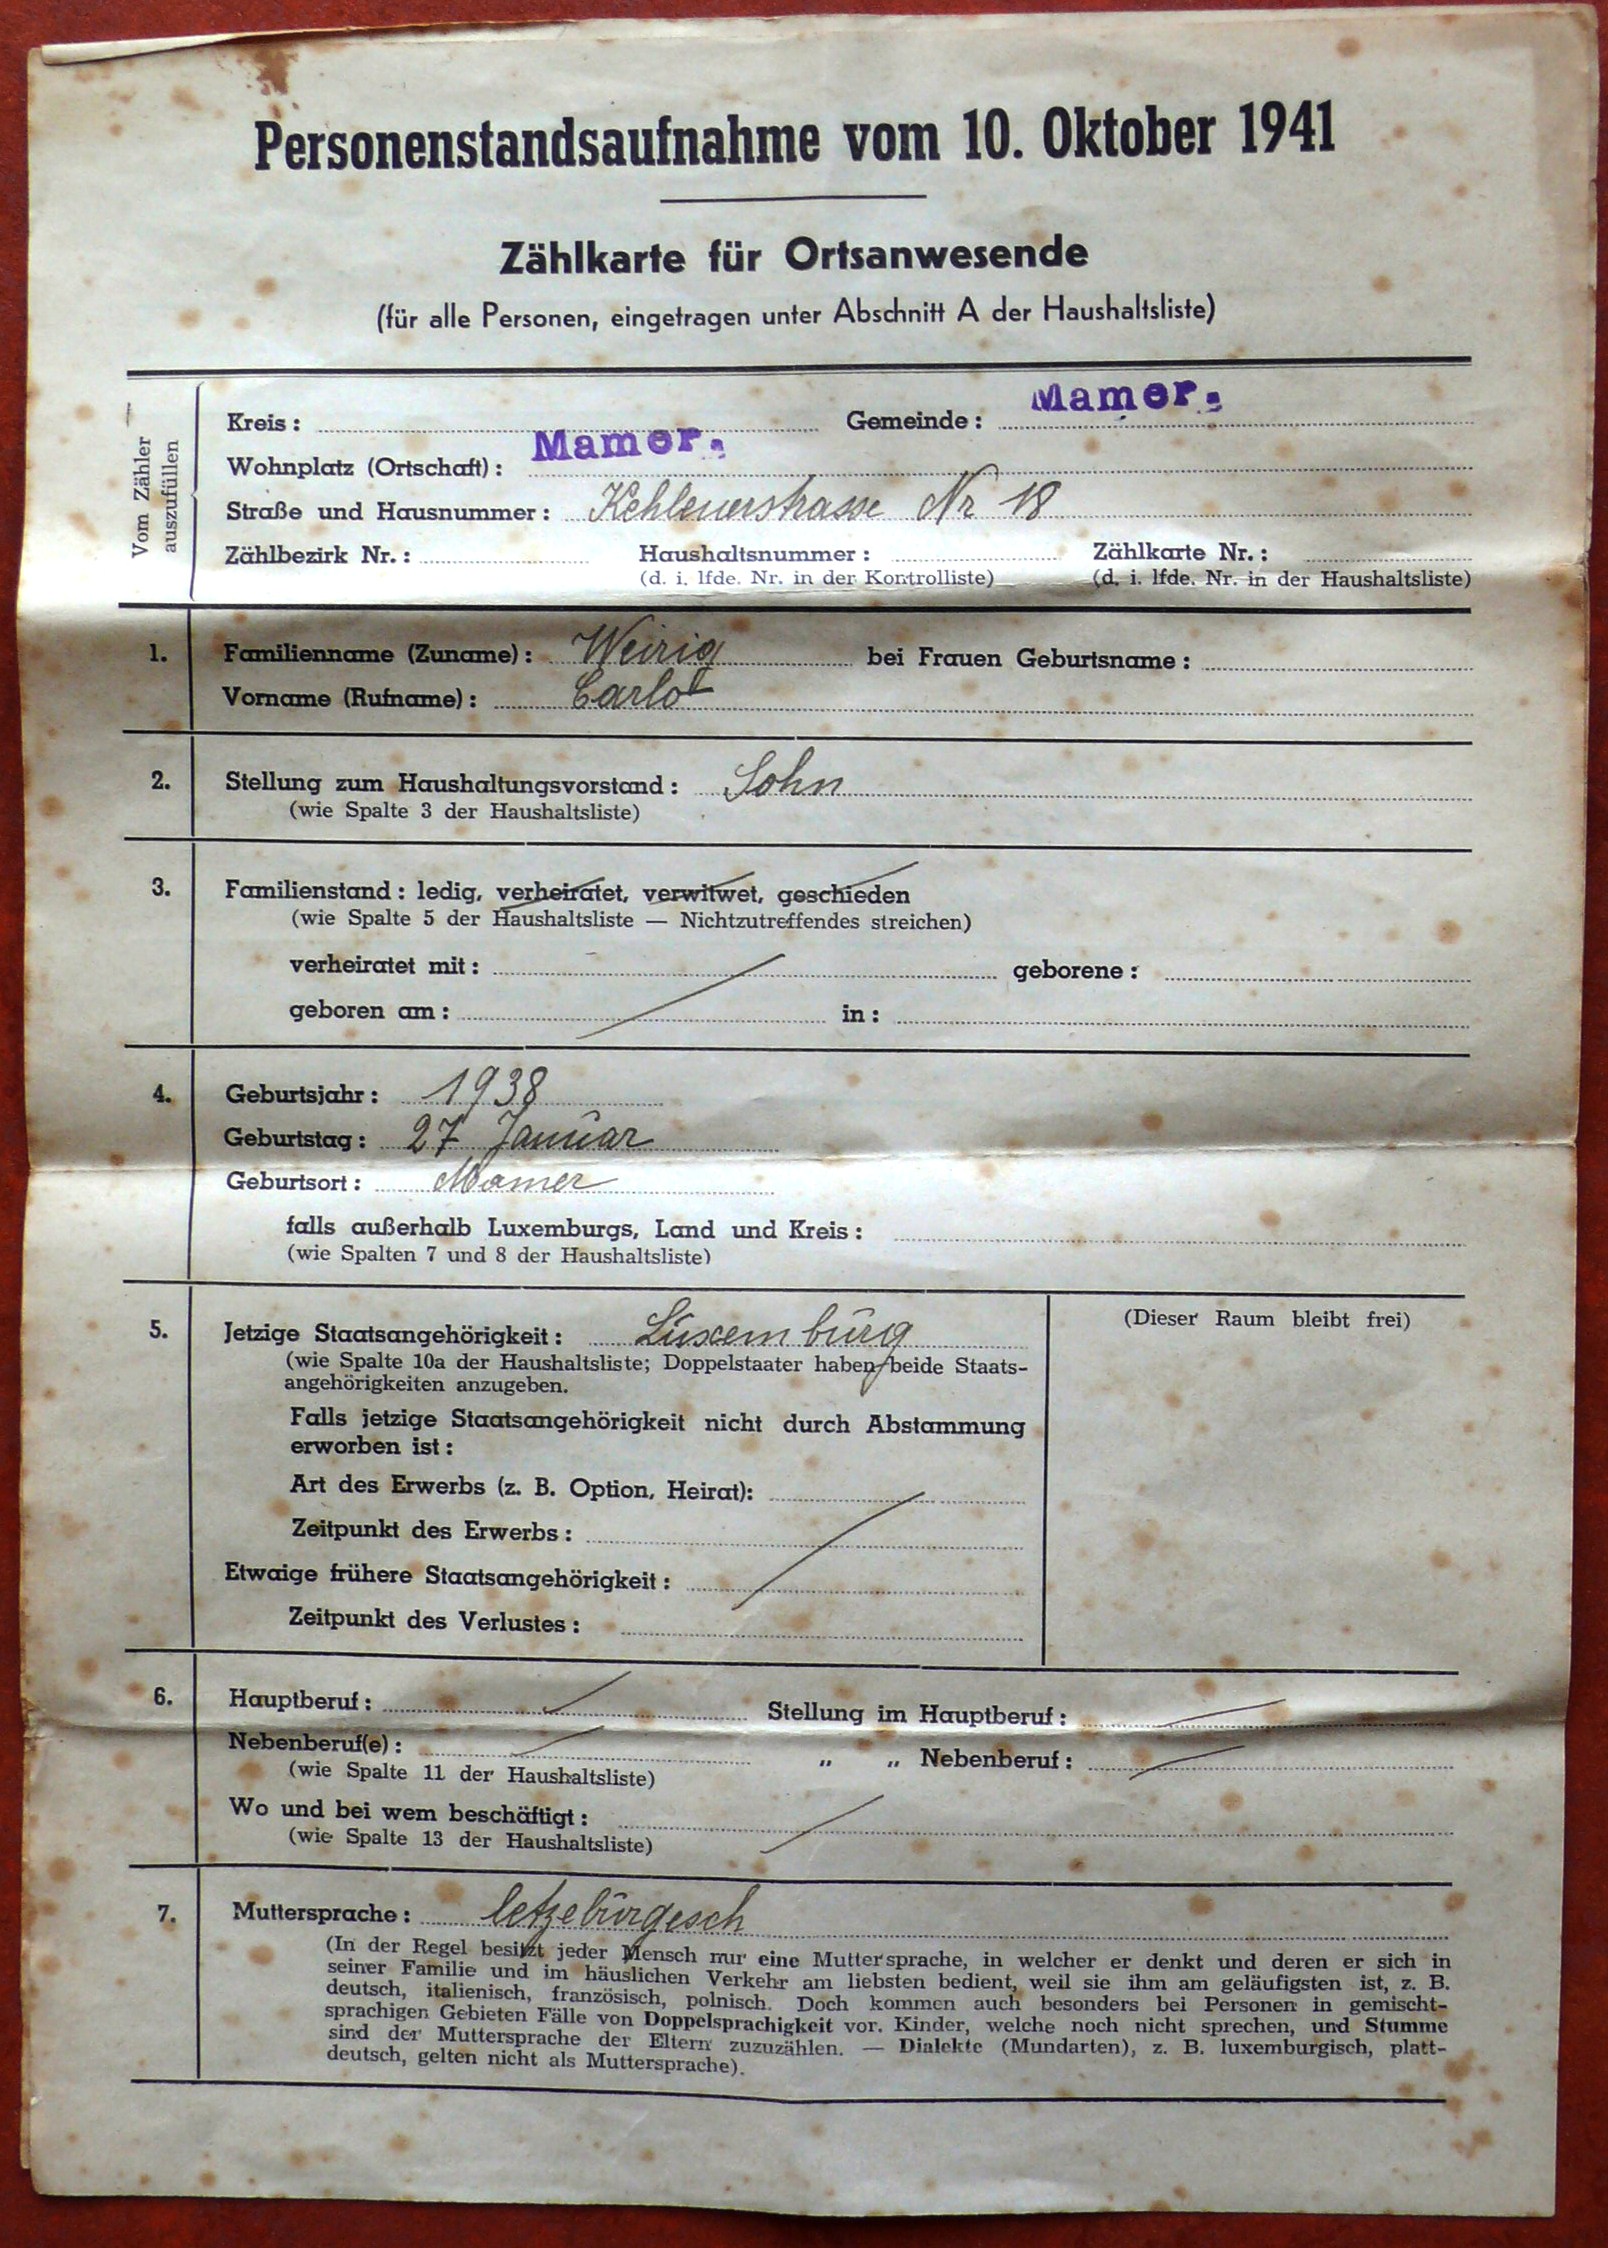 Personenstandsaufnahme vom 10. Oktober 1941
Zählkarte für Ortsanwesende
(für alle Personen, eingetragen unter Abschnitt A der Haushaltsliste)
Vom Zähler
auszufüllen
Kreis: Gemeinde: Mamer.
Wohnplatz (Ortschaft): Mamer.
Straße und Hausnummer: Kehlenerstrasse Nr 18
Zählbezirk Nr.: Haushaltsnummer: Zählkarte Nr.:
(d. i. lfde. Nr. in der Kontrolliste) (d. i. lfde. Nr. in der Haushaltsliste)
1. Familienname (Zuname): Weirig bei Frauen Geburtsname:
Vorname (Rufname): Carlo
2. Stellung zum Haushaltungsvorstand: Sohn
(wie Spalte 3 der Haushaltsliste)
3. Familienstand: ledig, verheiratet, verwitwet, geschieden
(wie Spalte 5 der Haushaltsliste — Nichtzutreffendes streichen)
verheiratet mit: geborene:
geboren am: in:
4. Geburtsjahr: 1938
Geburtstag: 27 Januar
Geburtsort: Mamer
falls außerhalb Luxemburgs, Land und Kreis:
(wie Spalten 7 und 8 der Haushaltsliste)
5. Jetzige Staatsangehörigkeit: Luxemburg (Dieser Raum bleibt frei)
(wie Spalte 10a der Haushaltsliste; Doppelstaater haben beide Staats-
angehörigkeiten anzugeben.
Falls jetzige Staatsangehörigkeit nicht durch Abstammung
erworben ist:
Art des Erwerbs (z. B. Option, Heirat):
Zeitpunkt des Erwerbs:
Etwaige frühere Staatsangehörigkeit:
Zeitpunkt des Verlustes:
6. Hauptberuf: Stellung im Hauptberuf:
Nebenberuf(e): „ „ Nebenberuf:
(wie Spalte 11 der Haushaltsliste)
Wo und bei wem beschäftigt:
(wie Spalte 13 der Haushaltsliste)
7. Muttersprache: letzebürgesch
(In der Regel besitzt jeder Mensch nur eine Muttersprache, in welcher er denkt und deren er sich in
seiner Familie und im häuslichen Verkehr am liebsten bedient, weil sie ihm am geläufigsten ist, z. B.
deutsch, italienisch, französisch, polnisch. Doch kommen auch besonders bei Personen in gemischt-
sprachigen Gebieten Fälle von Doppelsprachigkeit vor. Kinder, welche noch nicht sprechen, und Stumme
sind der Muttersprache der Eltern zuzuzählen. — Dialekte (Mundarten), z. B. luxemburgisch, platt-
deutsch, gelten nicht als Muttersprache).